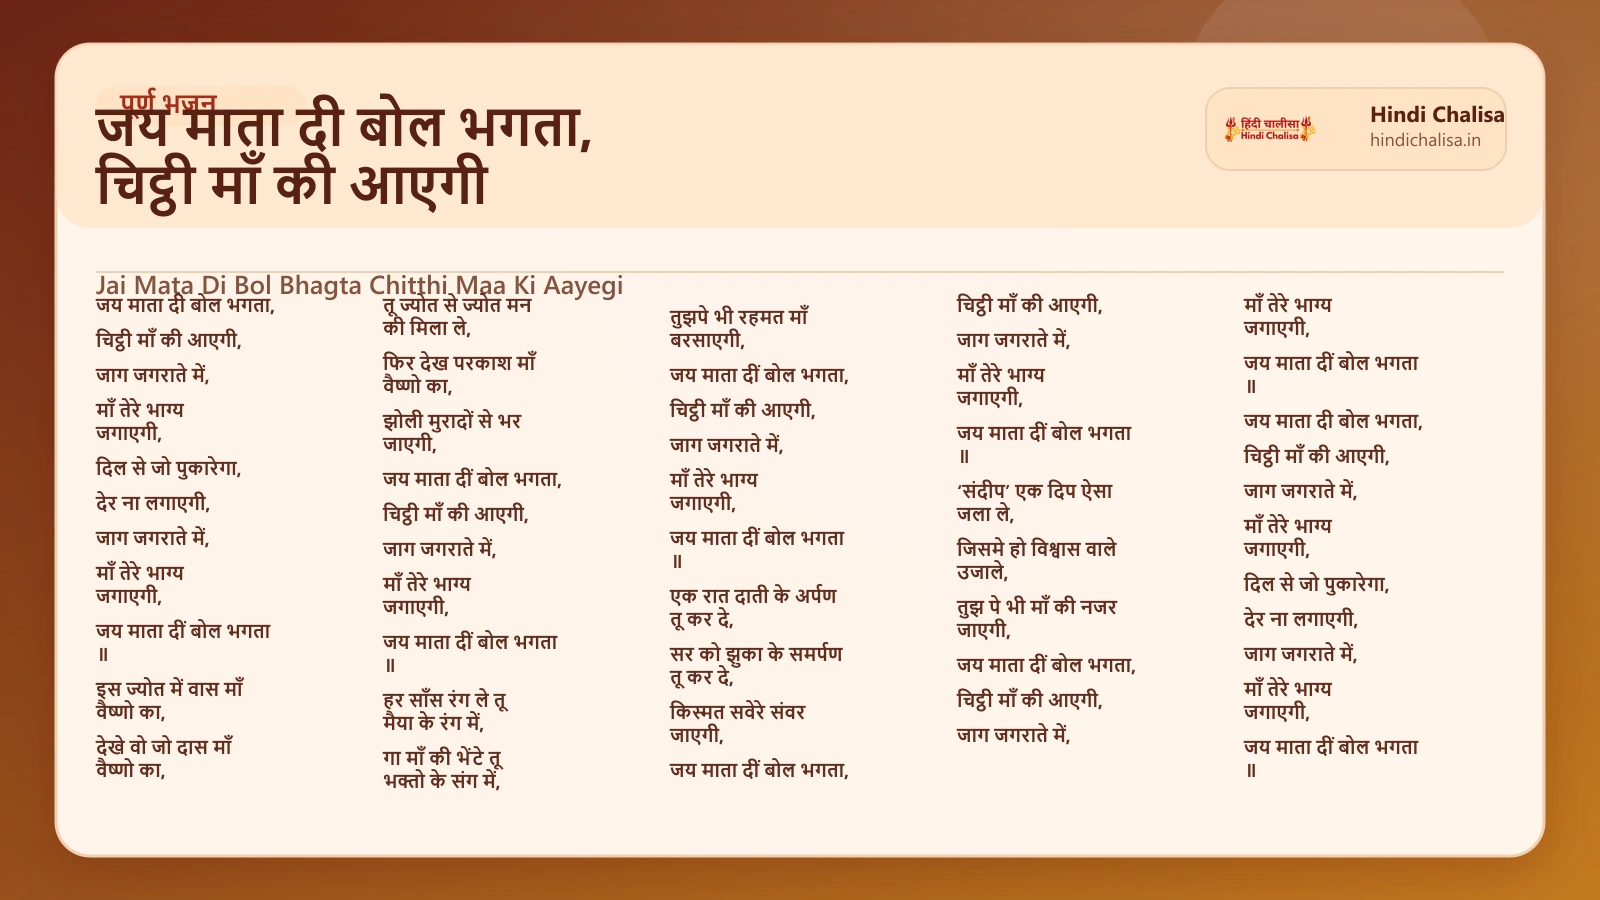 पूर्ण भजन
जय माता दी बोल भगता,
चिट्ठी माँ की आएगी
हिंदी चालीसा
Hindi Chalisa
Hindi Chalisa
hindichalisa.in
Jai Mata Di Bol Bhagta Chitthi Maa Ki Aayegi
जय माता दी बोल भगता,
चिट्ठी माँ की आएगी,
जाग जगराते में,
माँ तेरे भाग्य
जगाएगी,
दिल से जो पुकारेगा,
देर ना लगाएगी,
जाग जगराते में,
माँ तेरे भाग्य
जगाएगी,
जय माता दीं बोल भगता
॥
इस ज्योत में वास माँ
वैष्णो का,
देखे वो जो दास माँ
वैष्णो का,
तू ज्योत से ज्योत मन
की मिला ले,
फिर देख परकाश माँ
वैष्णो का,
झोली मुरादों से भर
जाएगी,
जय माता दीं बोल भगता,
चिट्ठी माँ की आएगी,
जाग जगराते में,
माँ तेरे भाग्य
जगाएगी,
जय माता दीं बोल भगता
॥
हर साँस रंग ले तू
मैया के रंग में,
गा माँ की भेंटे तू
भक्तो के संग में,
तुझपे भी रहमत माँ
बरसाएगी,
जय माता दीं बोल भगता,
चिट्ठी माँ की आएगी,
जाग जगराते में,
माँ तेरे भाग्य
जगाएगी,
जय माता दीं बोल भगता
॥
एक रात दाती के अर्पण
तू कर दे,
सर को झुका के समर्पण
तू कर दे,
किस्मत सवेरे संवर
जाएगी,
जय माता दीं बोल भगता,
चिट्ठी माँ की आएगी,
जाग जगराते में,
माँ तेरे भाग्य
जगाएगी,
जय माता दीं बोल भगता
॥
‘संदीप’ एक दिप ऐसा
जला ले,
जिसमे हो विश्वास वाले
उजाले,
तुझ पे भी माँ की नजर
जाएगी,
जय माता दीं बोल भगता,
चिट्ठी माँ की आएगी,
जाग जगराते में,
माँ तेरे भाग्य
जगाएगी,
जय माता दीं बोल भगता
॥
जय माता दी बोल भगता,
चिट्ठी माँ की आएगी,
जाग जगराते में,
माँ तेरे भाग्य
जगाएगी,
दिल से जो पुकारेगा,
देर ना लगाएगी,
जाग जगराते में,
माँ तेरे भाग्य
जगाएगी,
जय माता दीं बोल भगता
॥